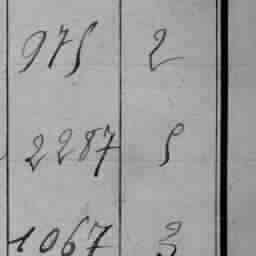 975 2
2287 5
1067 3